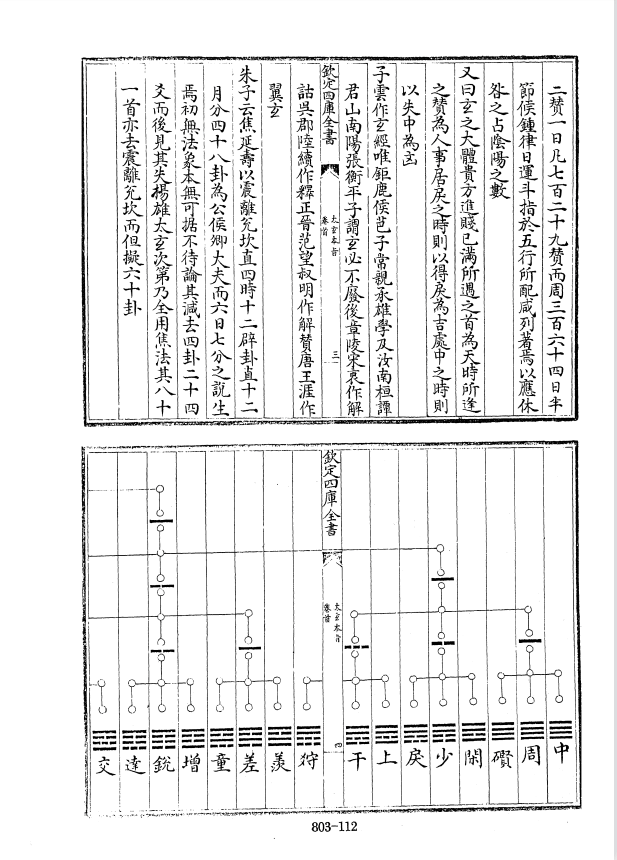 二贊一日凡七百二十九贊而周三百六十四日半
節候鍾律日運斗指於五行所配咸列著焉以應休
咎之占陰陽之數
又曰玄之大體貴方進賤已滿所遇之首為天時所逢
之贊為人事居戾之時則以得戾為吉處中之時則
以失中為凶
子雲作玄經唯鉅鹿侯芭子常親承雄學及汝南桓譚
君山南陽張衡平子謂玄必不廢後章陵宋衷作解
欽定四庫全書
太玄本旨
卷首
三
詁吳郡陸績作釋正晉范望叔明作解贊唐王涯作
翼玄
朱子云焦延壽以震離兊坎直四時十二辟卦直十二
月分四十八卦為公侯卿大夫而六日七分之說生
焉初無法象本無可据不待論其減去四卦二十四
爻而後見其失楊雄太玄次第乃全用焦法其八十
一首亦去震離兊坎而但擬六十卦
中
周
礥
閑
少
戾
上
干
欽定四庫全書
太玄本旨
卷首
四
狩
羨
差
童
增
銳
達
交
803-112